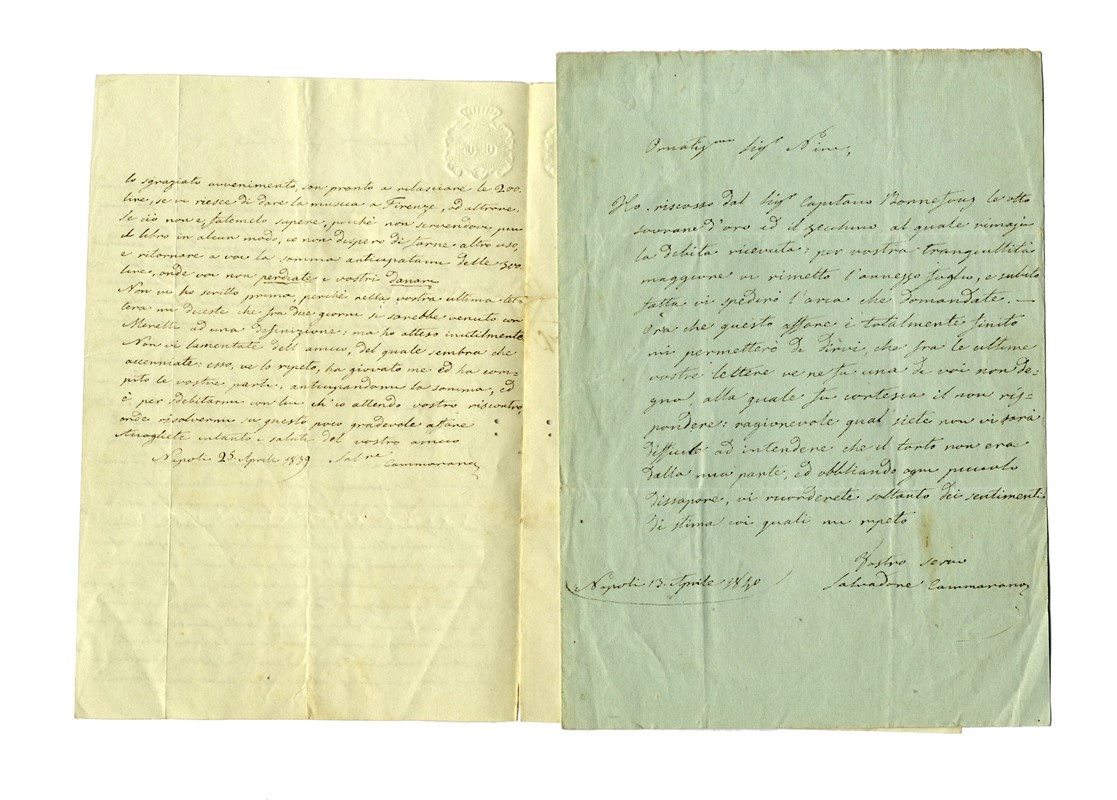 lo sgraziato avvenimento, son pronto a rilasciare le 200
lire, se vi riesce di dare la musica a Firenze, od altrove.
Se ciò non è, fatemelo sapere, perché non servendovi più
il libro in alcun modo, io non dispero di farne altro uso,
e ritornare a voi la somma anticipatami delle 300
lire, onde voi non perdiate i vostri danari
Non vi ho scritto prima, perché nella vostra ultima let=
tera mi diceste che fra due giorni si sarebbe venuto con
Merelli ad una definizione: ma ho atteso inutilmente
Non vi lamentate dell'amico, del quale sembra che
accenniate; esso, ve lo ripeto, ha giovato me ed ha com=
pito le vostre parti, anticipandomi la somma, ed
è per isdebitarmi con lui ch'io attendo vostro riscontro,
onde risolvermi a questo poco gradevole affare
Accogliete intanto i saluti del vostro amico
Napoli 25 Aprile 1839 Salre
Cammarano
Ornatismo Sigr Nini,
Ho riscosso dal Sigr Capitano Bonnefouz le otto
sovrane d'oro ed il zecchino al quale rimasi
la debita ricevuta: per vostra tranquillità
maggiore vi rimetto l'annesso foglio, e subito
fatta vi spedirò l'aria che domandate. —
Ora che questo affare è totalmente finito
mi permetterò di dirvi, che fra le ultime
vostre lettere ve ne fu una di voi non de=
gna, alla quale fu cortesia il non ris=
pondere: ragionevole qual siete non vi sarà
difficile ad intendere che il torto non era
dalla mia parte, ed obbliando ogni piccolo
dissapore, vi ricorderete soltanto dei sentimenti
di stima coi quali mi ripeto
Vostro servo
Napoli 13 Aprile 1840 Salvadore Cammarano